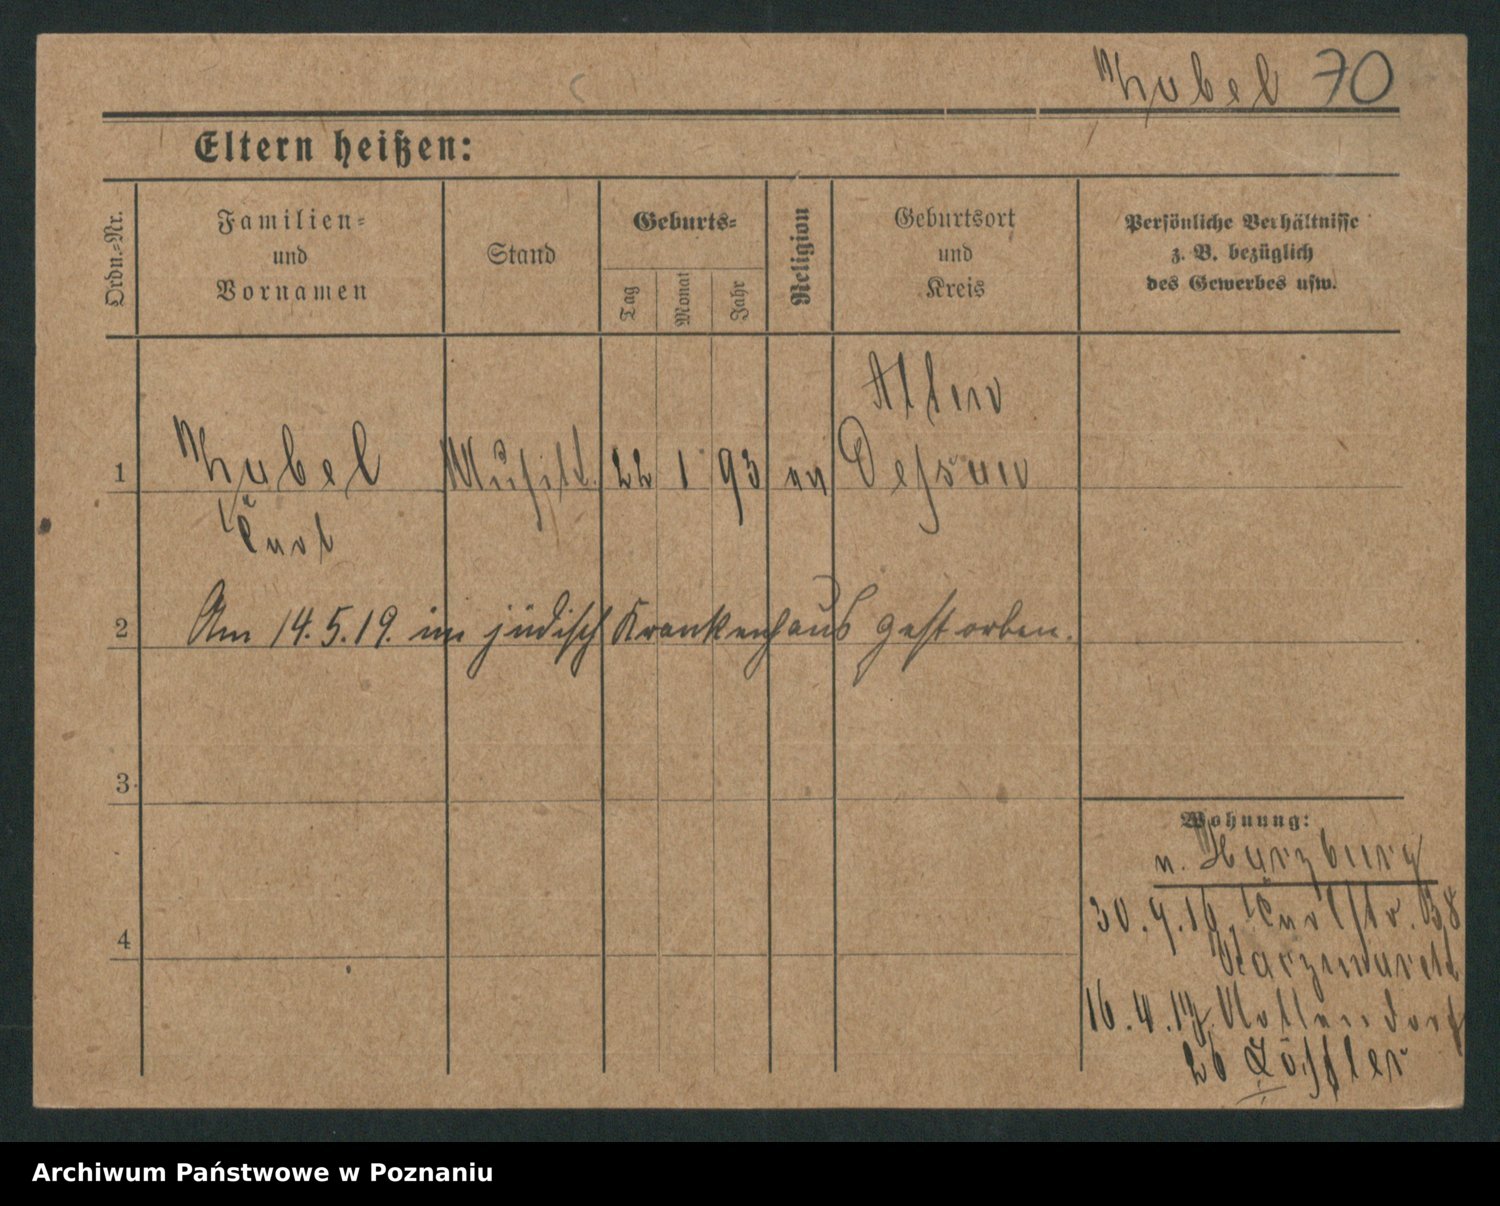 Zabel 70
Eltern heißen:
Ordn.-Nr.
Familien-
und
Vornamen
Stand
Geburts-
Tag
Monat
Jahr
Religion
Geburtsort
und
Kreis
Persönliche Verhältnisse
z. B. bezüglich
des Gewerbes usw.
Alten
1 Zabel Musikt. 22 1 93 ev Dessau
Curt
2 Am 14.5.19. im jüdisch Krankenhaus gestorben.
3
Wohnung:
n. Harzburg
4
30.9.16.
16.4.17. Nollendorf
26 Löffler
Archiwum Państwowe w Poznaniu